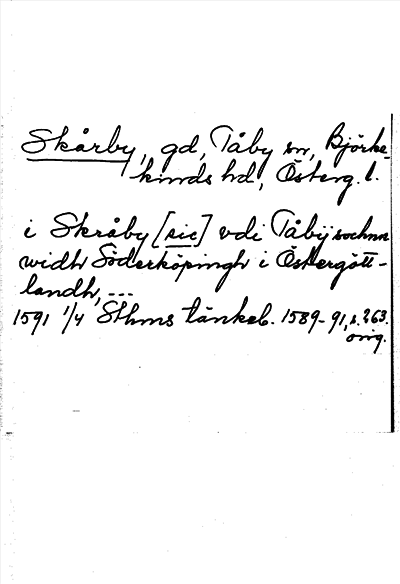 Skårby, gd, Tåby sn, Björke-
kinds hd, Österg. l.
i Skråby [sic] vdi Tåby sochnn
widh Söderköpingh i Östergött-
landh, ...
1591 1/4 Sthms tänkeb. 1589-91, s. 263.
orig.